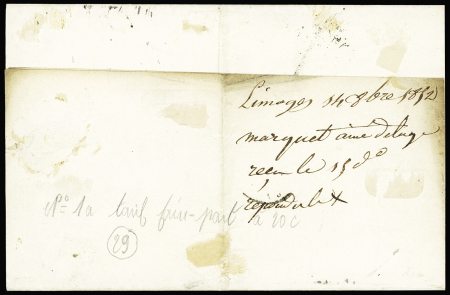 Limoges 14 8bre 1852
marquet ainé Deluge
reçu le 15 do
repondu le X
No 1a tarif frère-part à 20c
29